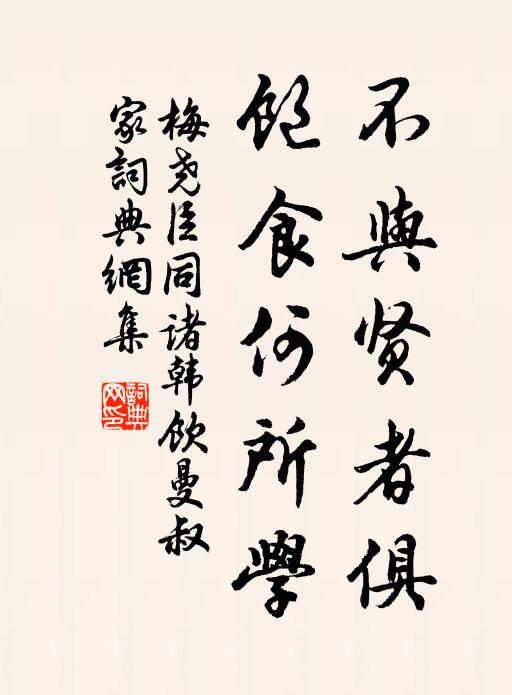 不與贤者俱
飽食何所學
梅尧臣同诸韩饮曼叔
家詞典網集
詞典
网印